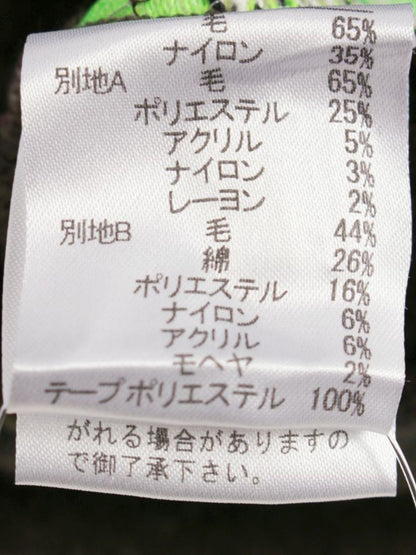 毛 65%
ナイロン 35%
別地A 毛 65%
ポリエステル 25%
アクリル 5%
ナイロン 3%
レーヨン 2%
別地B 毛 44%
綿 26%
ポリエステル 16%
ナイロン 6%
アクリル 6%
モヘヤ 2%
テープポリエステル 100%
がれる場合がありますの
で御了承下さい。